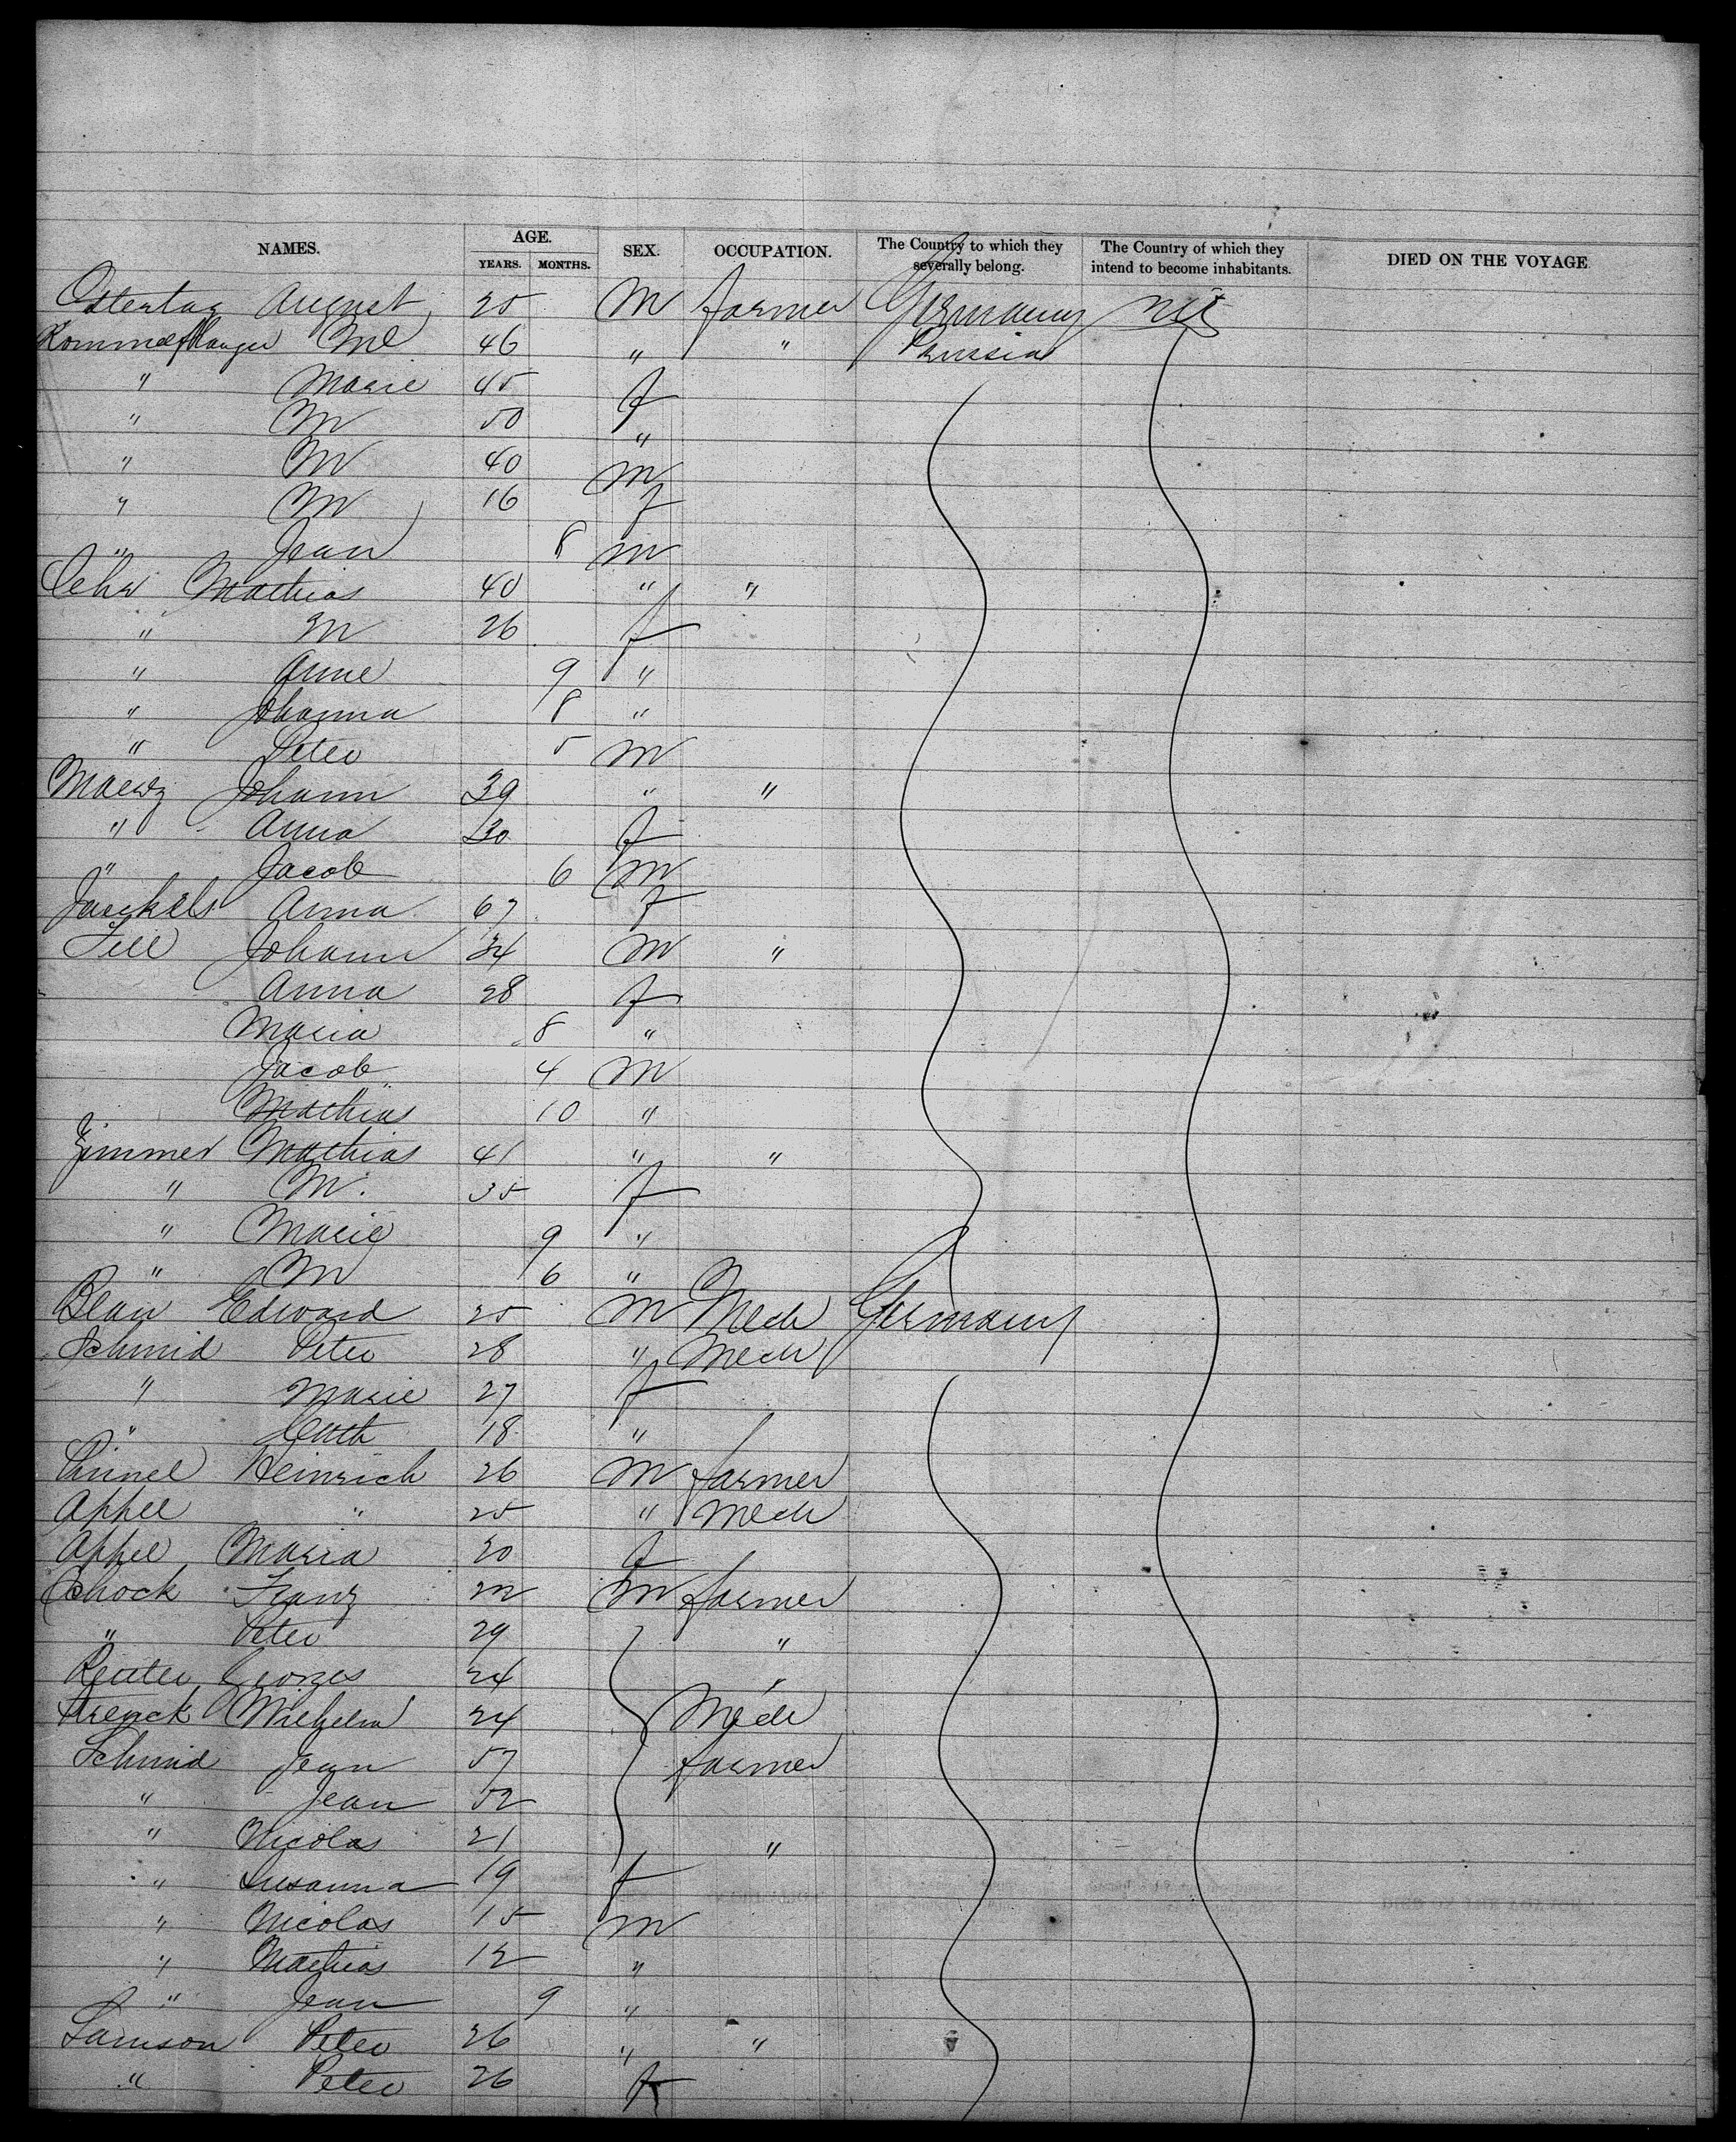 NAMES. AGE. YEARS. MONTHS. SEX. OCCUPATION. The Country to which they severally belong. The Country of which they intend to become inhabitants. DIED ON THE VOYAGE
Ostertag August 25 M farmer Germany
46 " " Prussia
" Marie 45 f
" M 50 "
" M 40 M
" M 16 f
" Jean 8 m
Mathias 40 " "
" M 26 f
" Anne 9 "
" Johanna 8 "
" Peter 5 M
Johann 39 " "
" Anna 30 f
" Jacob 6 M
Jaeckels Anna 67 f
Fell Johann 34 M "
Anna 28 f
Maria 8 "
Jacob 4 M
Mathias 10 "
Zimmer Mathias 41 " "
" M. 35 f
" Marie 9 "
" M 6 "
Blau Edward 25 M Mech Germany
Schmid Peter 28 " Mech
" Marie 27 f
" Cath 18 "
Heinrich 26 M farmer
Appel " 25 " Mech
Appel Maria 20 f
Schock Franz 22 M farmer
" Peter 29 "
Reuter Georges 24 "
Wilhelm 24 Mech
Schmid Jean 57 farmer
" Jean 52
" Nicolas 21 "
" Susanna 19 f
" Nicolas 15 M
" Mathias 12 "
" Jean 9 "
Samson Peter 26 " "
" Peter 26 f